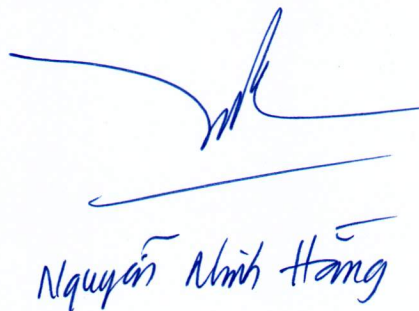 Nguyễn Minh Hằng